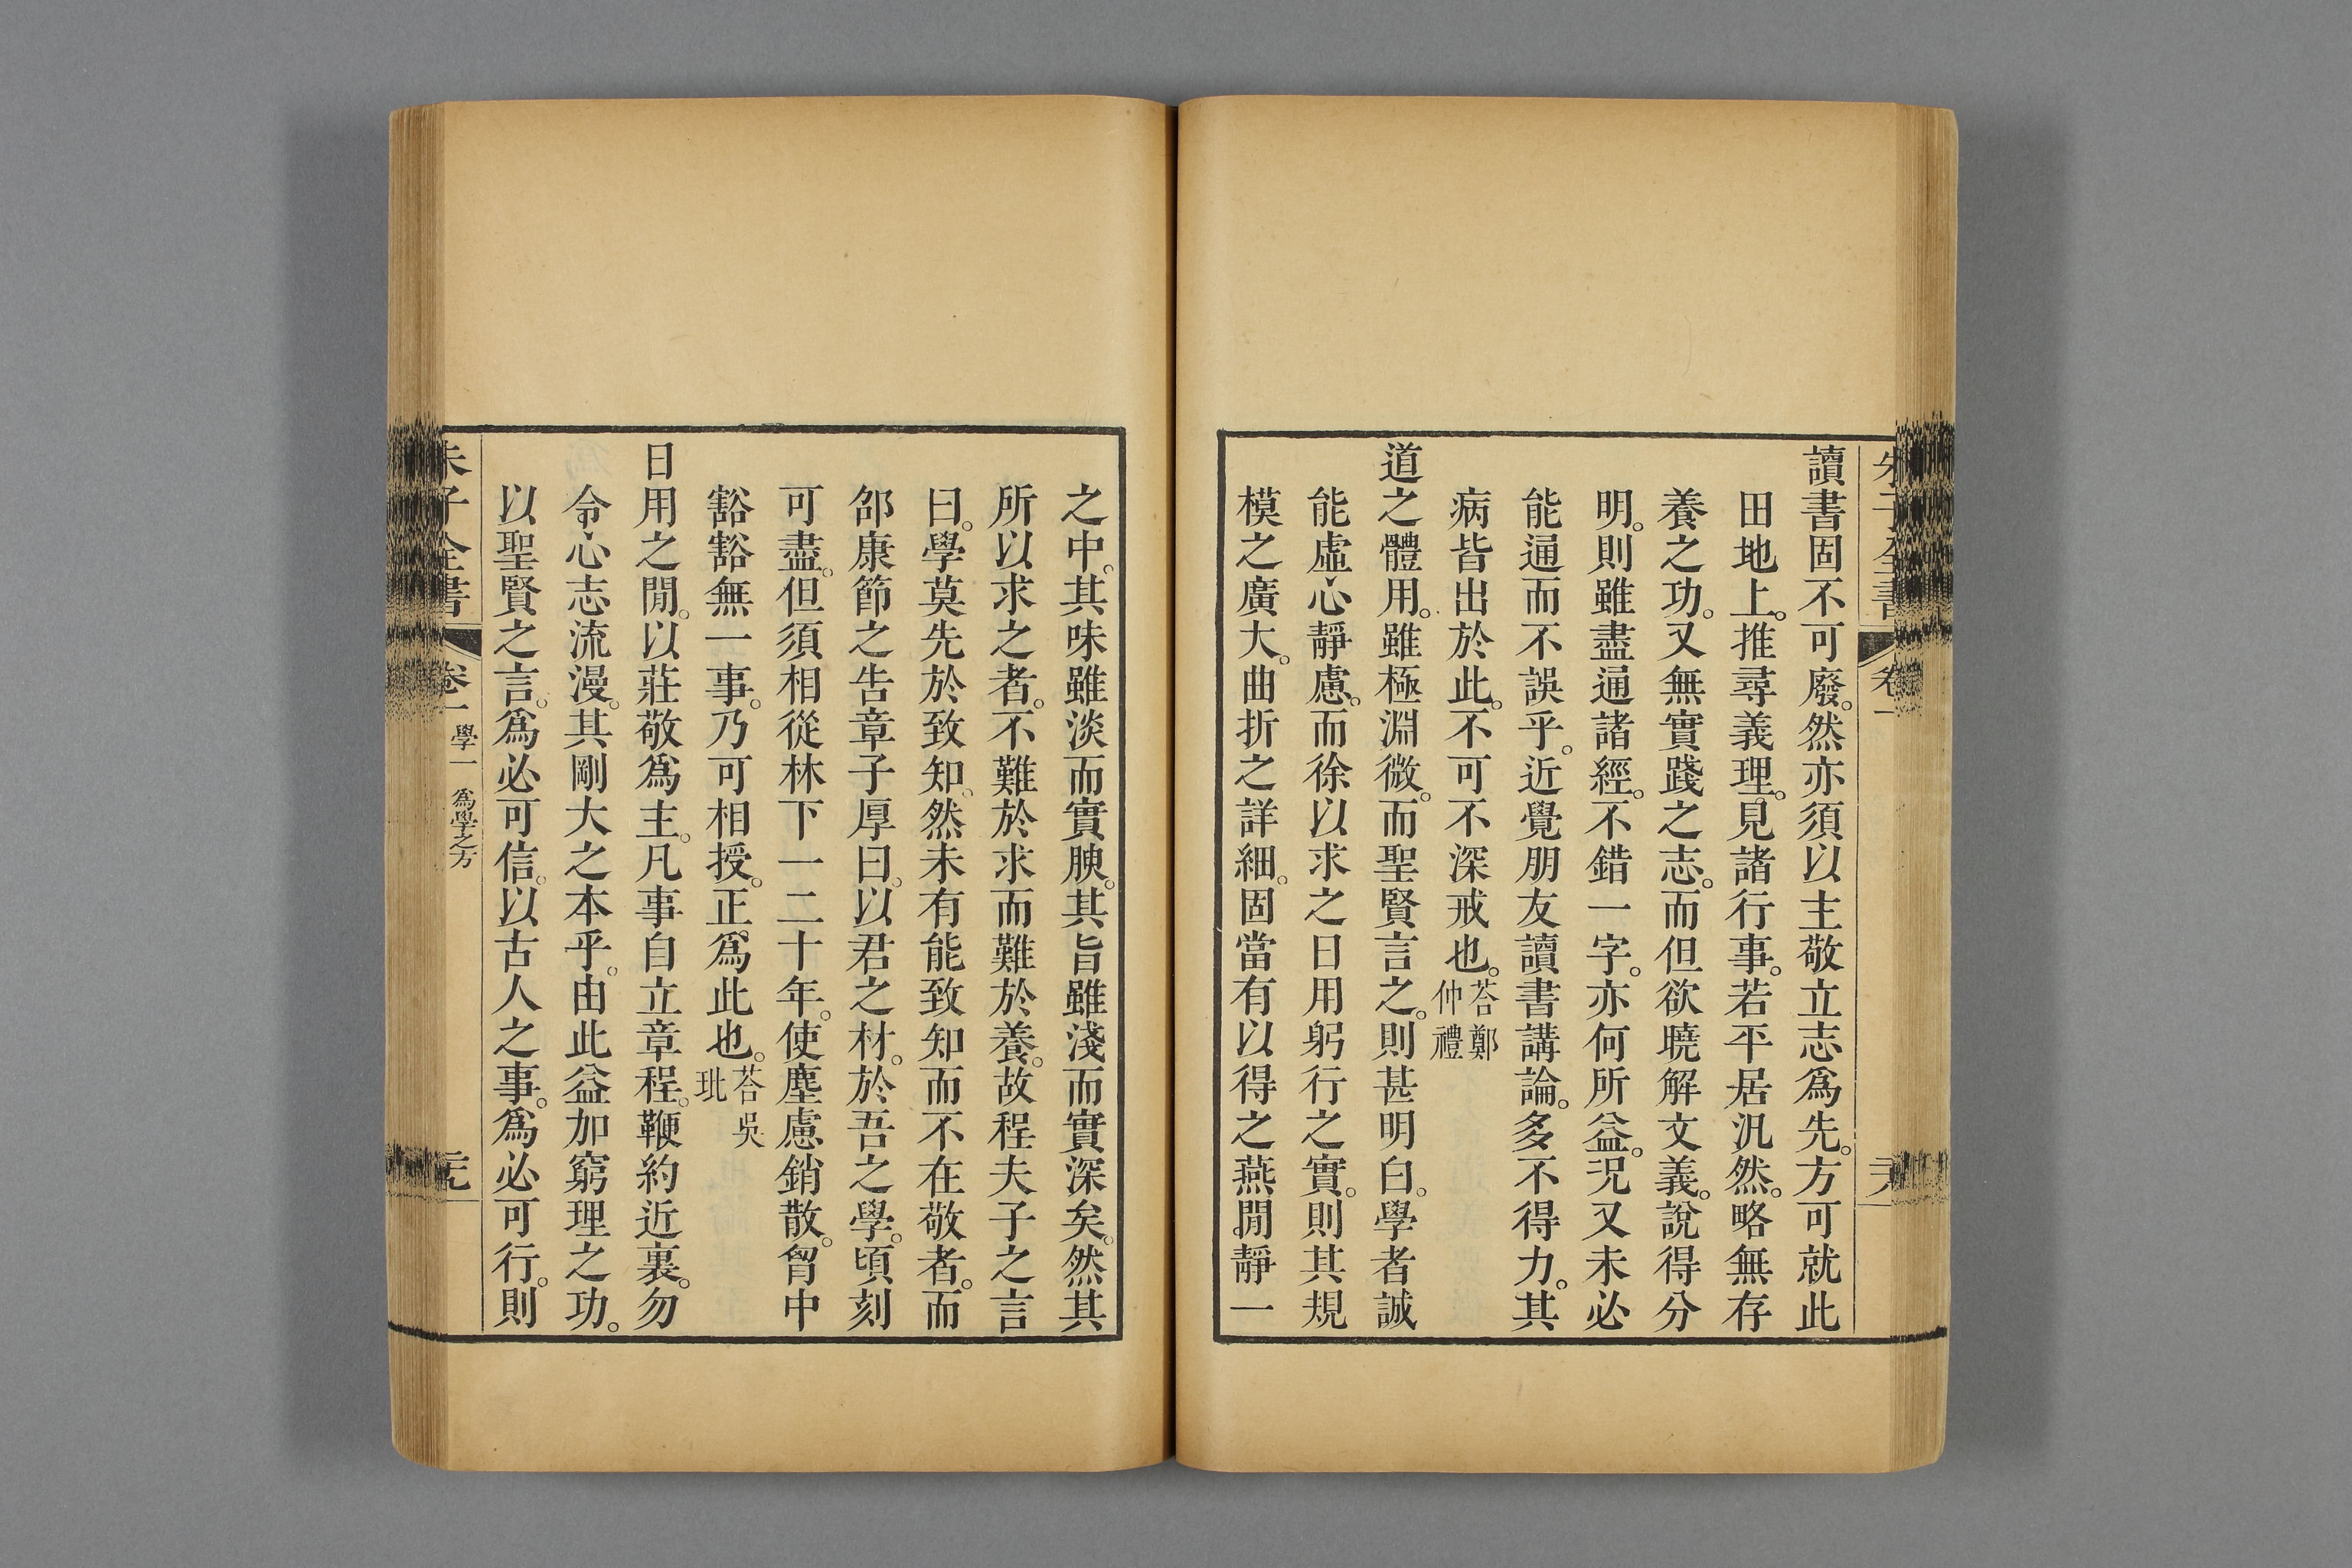 朱子全書 卷一 六
讀書固不可廢。然亦須以主敬立志爲先。方可就此
田地上。推尋義理。見諸行事。若平居汎然。略無存
養之功。又無實踐之志。而但欲曉解文義。說得分
明。則雖盡通諸經。不錯一字。亦何所益。況又未必
能通而不誤乎。近覺朋友讀書講論。多不得力。其
病皆出於此。不可不深戒也。荅鄭仲禮
道之體用。雖極淵微。而聖賢言之。則甚明白。學者誠
能虛心靜慮。而徐以求之日用躬行之實。則其規
模之廣大。曲折之詳細。固當有以得之燕閒靜一
之中。其味雖淡而實腴。其旨雖淺而實深矣。然其
所以求之者。不難於求而難於養。故程夫子之言
曰。學莫先於致知。然未有能致知而不在敬者。而
邵康節之告章子厚曰。以君之材。於吾之學。頃刻
可盡。但須相從林下一二十年。使塵慮銷散。胷中
豁豁無一事。乃可相授。正爲此也。荅吳玭
日用之閒。以莊敬爲主。凡事自立章程。鞭約近裏。勿
令心志流漫。其剛大之本乎。由此益加窮理之功。
以聖賢之言。爲必可信。以古人之事。爲必可行。則
朱子全書 卷一 學一 爲學之方